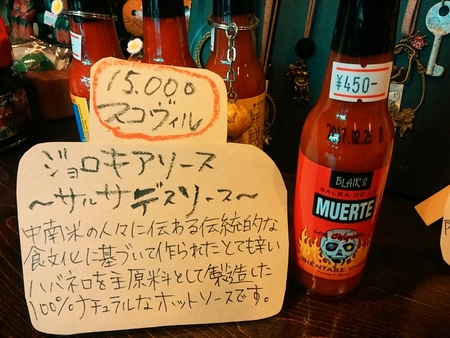 15.000
スコヴィル
ジョロキアソース
～サルサデスソース～
中南米の人々に伝わる伝統的な
食文化に基づいて作られたとても辛い
ハバネロを主原料として製造した
100%ナチュラルなホットソースです。
¥450-
2017.02.25 B
BLAIR'S
SALSA DE LA
MUERTE
SIENTASE VIVO